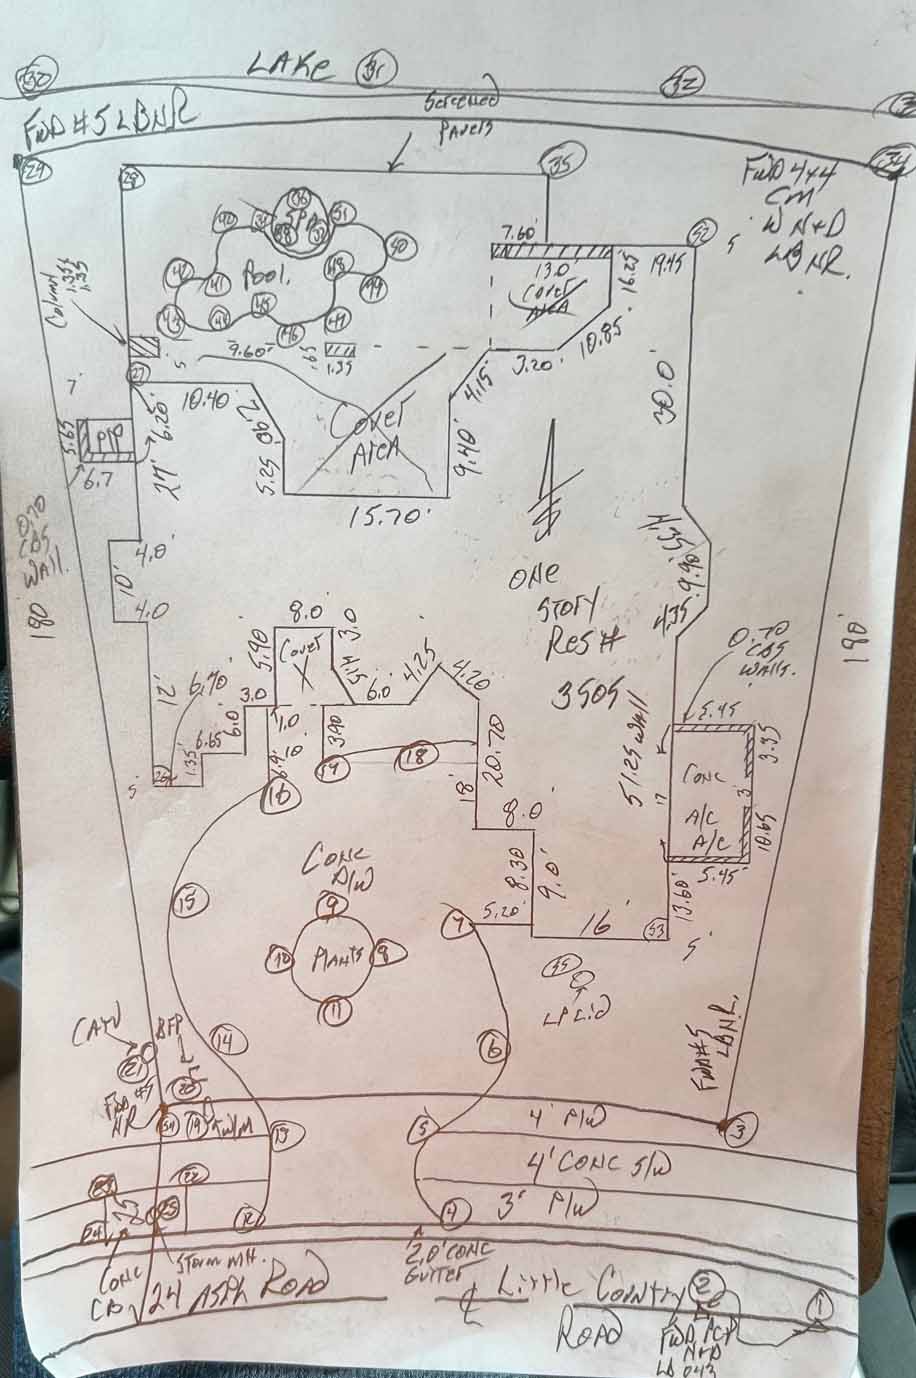 LAKE
30
31
32
Screened
Panels
FND #5 LBNR
29
28
35
34
FND 4x4
CM
W N+D
LBNR.
36
SPA
51
40
50
Pool.
48
41
49
45
46
7.60'
52
5'
13.0
Cover
AreA
16.25
19.45
10.85
3.20'
Column
1.35x
1.35
9.60'
.65
1.35
5'
27
7'
10.40'
4.15'
30.0'
Cover
AreA
6.20'
7.90
5.65
P/P
6.7
27'
5.25
9.40'
15.70'
0.70
CBS
WAll.
180'
4.0'
10'
4.0
4.35'
9.90'
4.35
ONe
STORY
RES #
3505
190'
8.0'
3.0
5.90
Cover
X
4.15
4.25
4.20
6.0'
12'
6.70'
3.0
6.0
6.65
1.35
26
5'
1.0
3.90
6.10
19
18
16
20.70
18'
8.0
0.70
CBS
WAlls.
5.45
3.35
51.25 WAll
17
CONC
A/C
A/C
3'
10.65
5.45'
13.60'
8.30
9.0'
5.20'
16'
53
5'
CONC
D/W
15
9
10
PLANTS
8
11
7
55
LP Lid
6
14
CATV
21
BFP
20
FND #5
NR
54
19
WM
13
5
FND #5
LBNR.
3
4' P/W
4' CONC S/W
3' P/W
22
23
24
25
12
4
CONC
CB
Storm MH.
2.0' CONC
Gutter
24' ASPh ROAD
Little Country
ROAD
2
1
FND PCP
N+D
LB 043